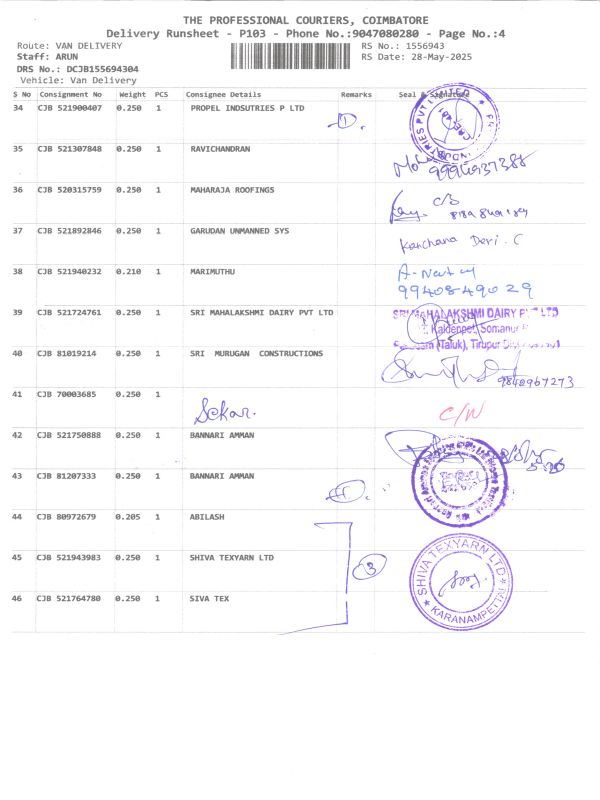 THE PROFESSIONAL COURIERS, COIMBATORE
Delivery Runsheet - P103 - Phone No.:9047080280 - Page No.:4
Route: VAN DELIVERY RS No.: 1556943
Staff: ARUN RS Date: 28-May-2025
DRS No.: DCJB155694304
Vehicle: Van Delivery
S No Consignment No Weight PCS Consignee Details Remarks Seal & Signature
34 CJB 521900407 0.250 1 PROPEL INDSUTRIES P LTD
1
35 CJB 521307848 0.250 1 RAVICHANDRAN
36 CJB 520315759 0.250 1 MAHARAJA ROOFINGS
C/B
37 CJB 521892846 0.250 1 GARUDAN UNMANNED SYS
Kanchana Devi. C
38 CJB 521940232 0.210 1 MARIMUTHU
9940849029
39 CJB 521724761 0.250 1 SRI MAHALAKSHMI DAIRY PVT LTD SRI MAHALAKSHMI DAIRY PVT LTD
(Taluk), Tirupur
40 CJB 81019214 0.250 1 SRI MURUGAN CONSTRUCTIONS
9842967273
41 CJB 70003685 0.250 1
Sekar. C/W
42 CJB 521750888 0.250 1 BANNARI AMMAN
43 CJB 81207333 0.250 1 BANNARI AMMAN
44 CJB 80972679 0.205 1 ABILASH
45 CJB 521943983 0.250 1 SHIVA TEXYARN LTD 3 SHIVA TEXYARN LTD
46 CJB 521764780 0.250 1 SIVA TEX KARANAMPETTAI